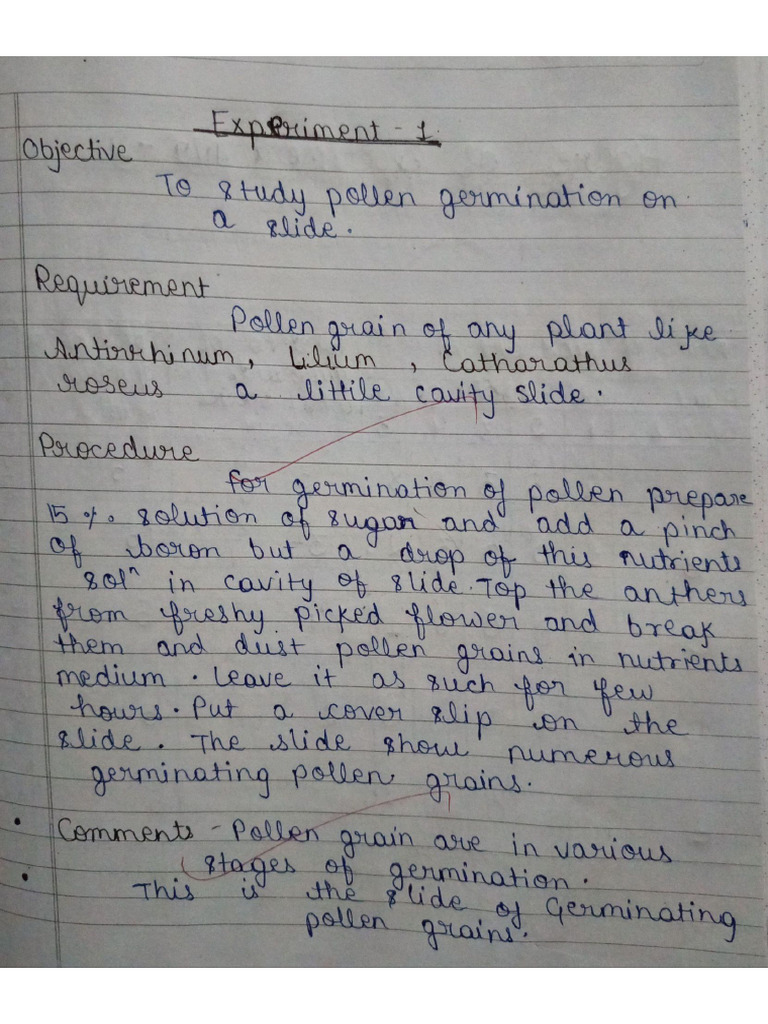 Experiment - 1.
Objective
To study pollen germination on
a slide.
Requirement
Pollen grain of any plant like
Antirrhinum, Lilium, Catharathus
roseus a littile cavity slide.
Procedure
for germination of pollen prepare
15 %. solution of sugar and add a pinch
of boron but a drop of this nutrients
solⁿ in cavity of slide. Top the anthers
from freshy picked flower and break
them and dust pollen grains in nutrients
medium. Leave it as such for few
hours. Put a cover slip on the
slide. The slide show numerous
germinating pollen grains.
• Comments - Pollen grain are in various
stages of germination.
• This is the slide of Germinating
pollen grains.